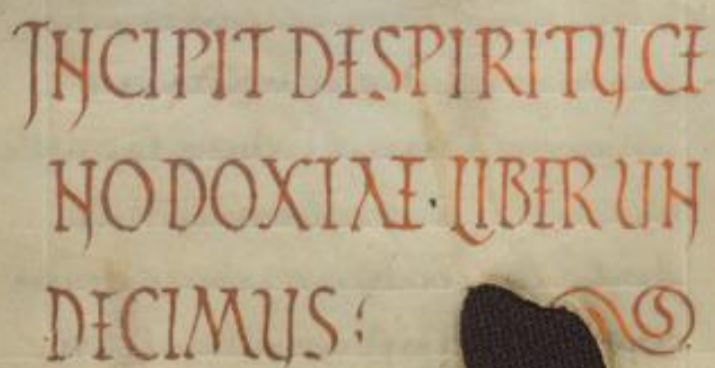 INCIPIT DE SPIRITU CE
NODOXIAE · LIBER UN
DECIMUS :